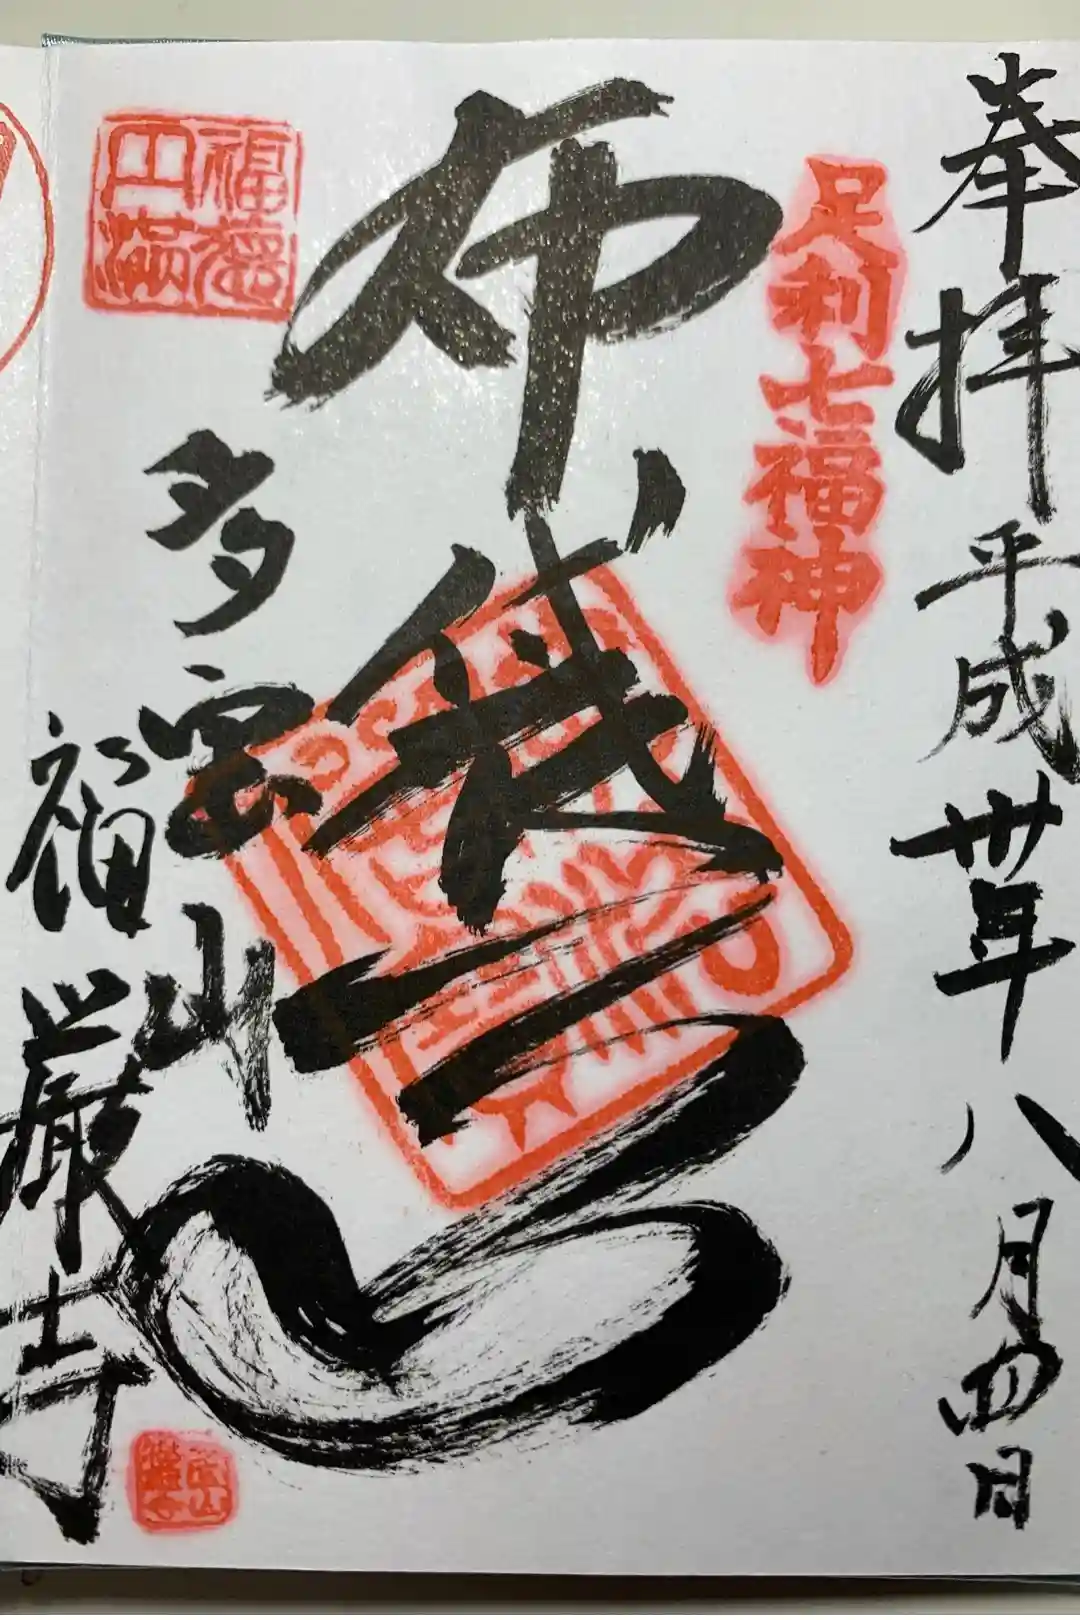 奉拝 平成卅年八月四日
足利七福神
布袋尊
福徳
円満
多宝山
福厳寺